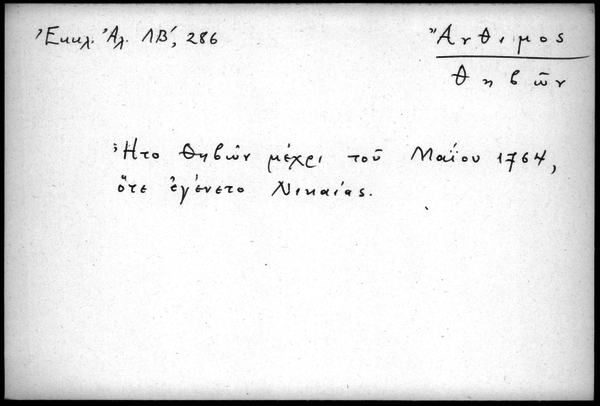 Ἐκκλ. Ἀλ. ΛΒ΄, 286
Ἄνθιμος
Θηβῶν
Ἦτο Θηβῶν μέχρι τοῦ Μαΐου 1764,
ὅτε ἐγένετο Νικαίας.